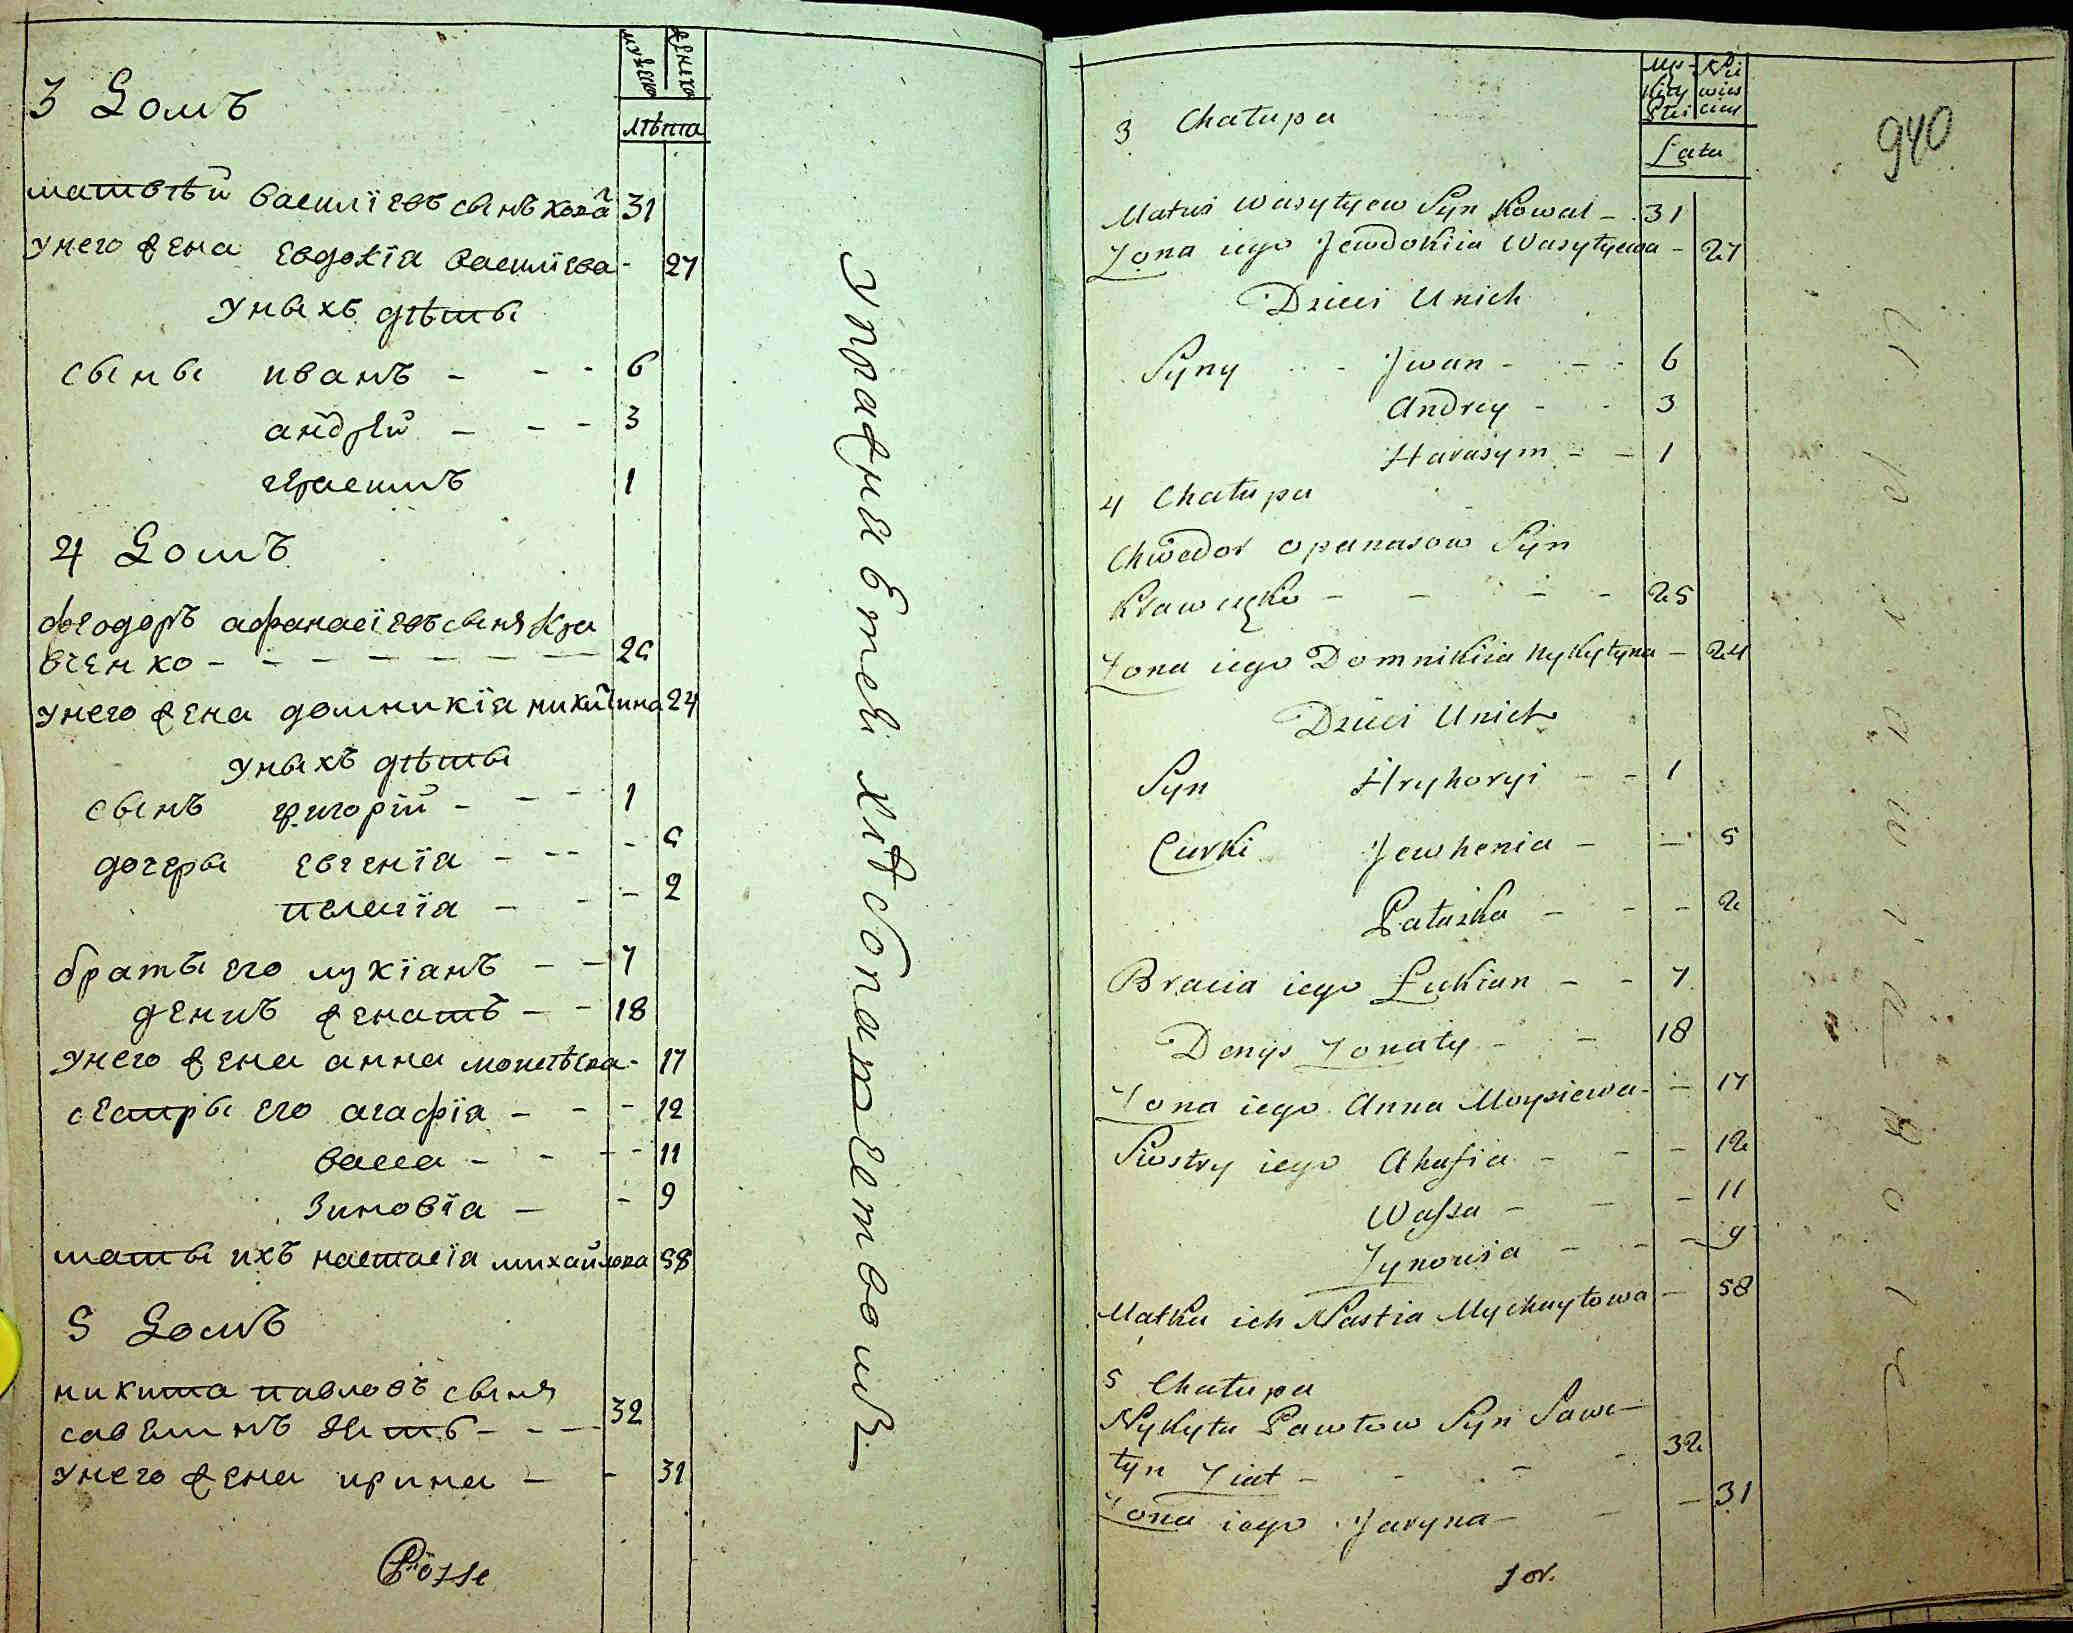 мужеска
женска
3 Домъ
лѣта
матвѣй василїевъ сынъ кова 31
унего жена евдокїа василїева - 27
уныхъ дѣты
сыны иванъ - - - 6
андрѣй - - - 3
герасимъ 1
4 Домъ
феодоръ афанасїевъ сыня Кра
вченко - - - - - - 25
унего жена домникїа никитина 24
уныхъ дѣты
сынъ григорїй - - - 1
дочеры евгенїа - - - - 5
пелагїа - - - 2
браты его лукїанъ - - 7
денисъ женатъ - - 18
унего жена анна моисѣева - 17
сестры его агафїа - - - 12
васса - - - - 11
Зиновїа - - 9
маты ихъ настасїа михайлова 58
5 Домъ
никита павловъ сыня
савѣтинъ зять - - - 32
унего жена ирина - - 31
упражняветъся хлѣбопашетвомъ
940
Męs- Nie
kiey wies
Płci ciey
3 Chałupa
Lata
Matwi Wasylyew Syn Kowal - 31
Zona iego Jewdokiia Wasylyewa - 27
Dzieci Unich
Syny Jwan - - - 6
Andrey - - 3
Harasym - - 1
4 Chałupa
Chwedor opanasow Syn
Krawczęko - - - - 25
Zona iego Domnikiia Nykytyna - 24
Dzieci Unich
Syn Hryhoryi - - 1
Curki Jewhenia - - 5
Pałażka - - - 2
Bracia iego Łukian - - 7
Denys Zonaty - - 18
Zona iego Anna Moysiewa - - 17
Siostry iego Ahafia - - - 12
Wassa - - - 11
Zynowia - - - 9
Matka ich Nastia Mychayłowa - 58
5 Chałupa
Nykyta Pawłow Syn Sawe-
tyn Ziat - - - - 32
Zona iego Jaryna - - - 31